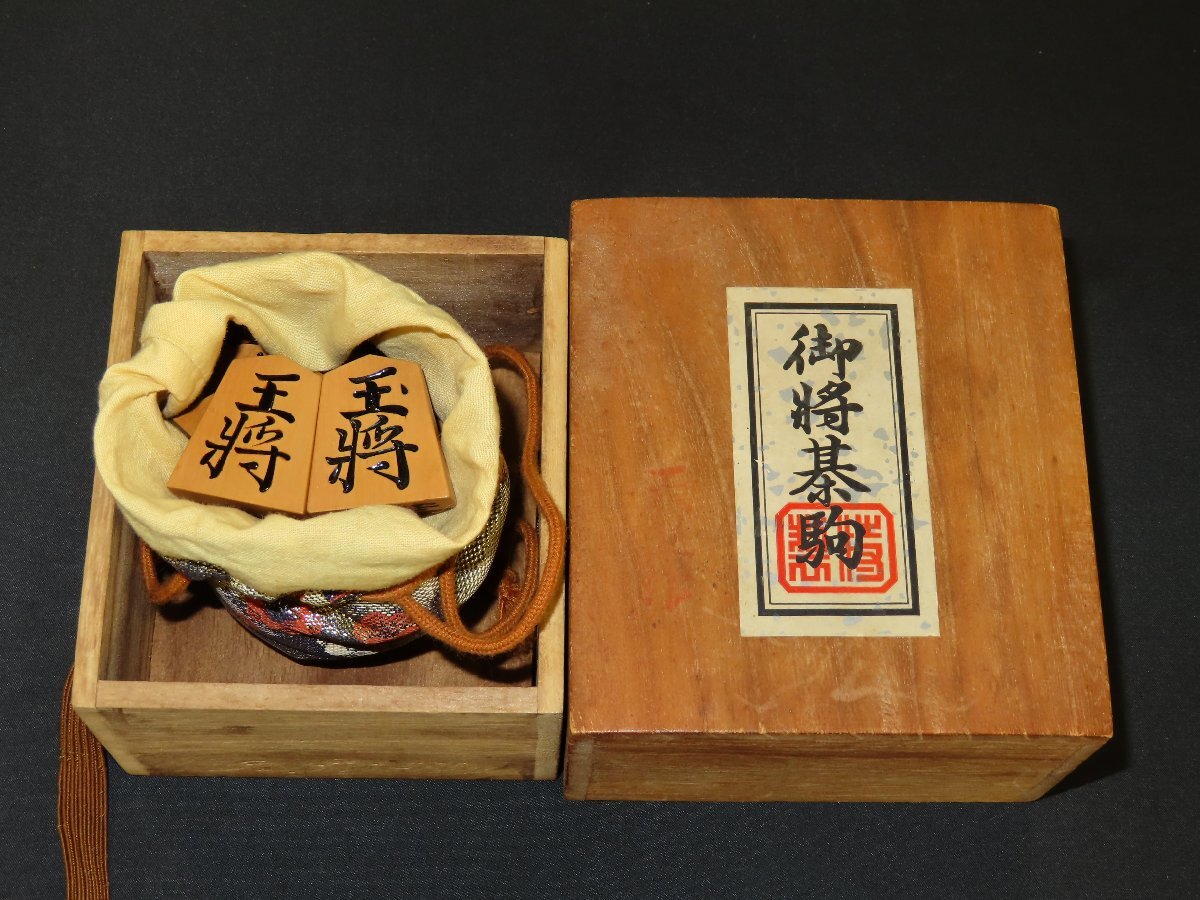 王將
玉將
御將棊駒